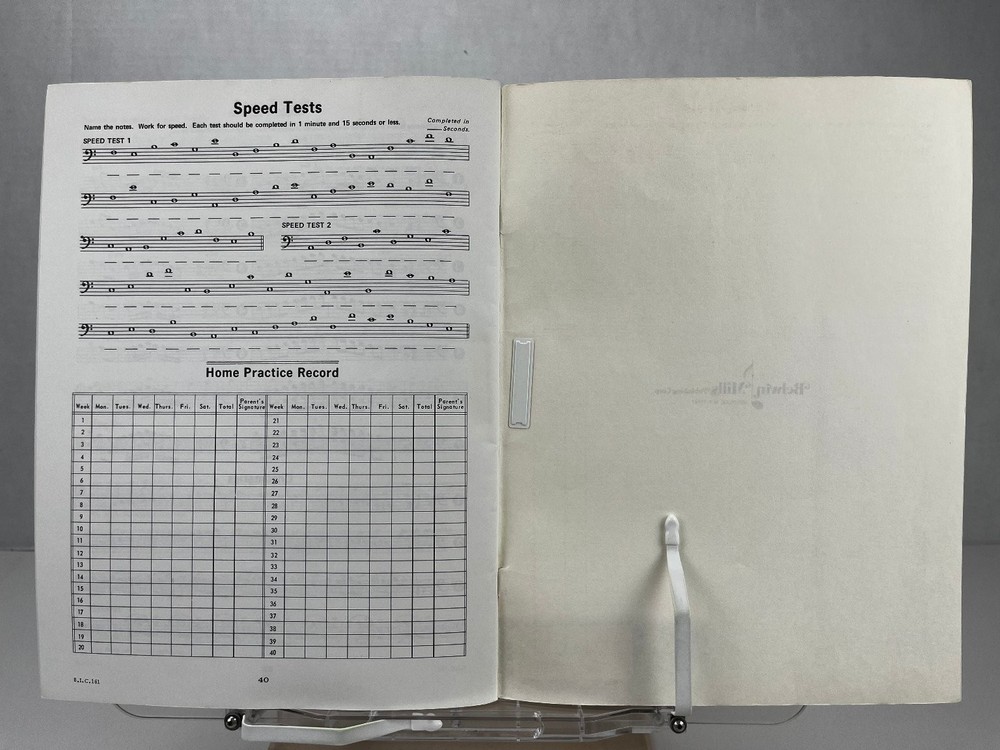 Speed Tests
Name the notes. Work for speed. Each test should be completed in 1 minute and 15 seconds or less.
Completed in
____ Seconds.
SPEED TEST 1
SPEED TEST 2
Home Practice Record
Week Mon. Tues. Wed. Thurs. Fri. Sat. Total Parent's Signature Week Mon. Tues. Wed. Thurs. Fri. Sat. Total Parent's Signature
1 21
2 22
3 23
4 24
5 25
6 26
7 27
8 28
9 29
10 30
11 31
12 32
13 33
14 34
15 35
16 36
17 37
18 38
19 39
20 40
B.I.C.161
40
Belwin Mills